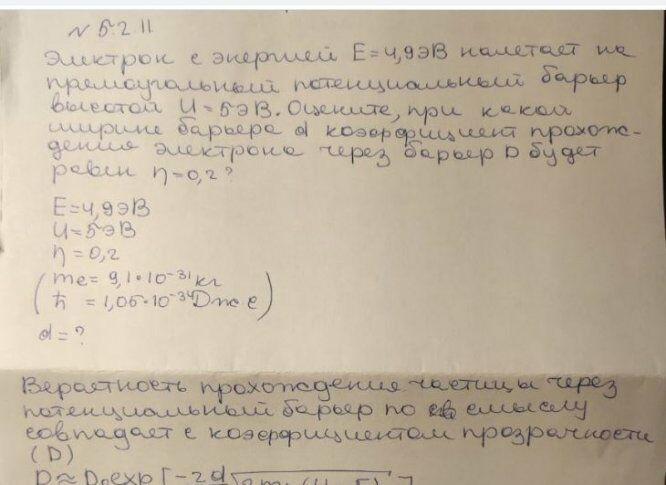 N 5.2.11
Электрон с энергией E=4,9эВ налетает на
прямоугольный потенциальный барьер
высотой U=5эВ. Оцените, при какой
ширине барьера d коэффициент прохож-
дения электрона через барьер D будет
равен η=0,2?
E=4,9эВ
U=5эВ
η=0,2
(me= 9,1·10⁻³¹кг
ħ = 1,05·10⁻³⁴Dж c)
d=?
Вероятность прохождения частицы через
потенциальный барьер по смыслу
совпадает с коэффициентом прозрачности
(D)
D≈D₀exp[-2d